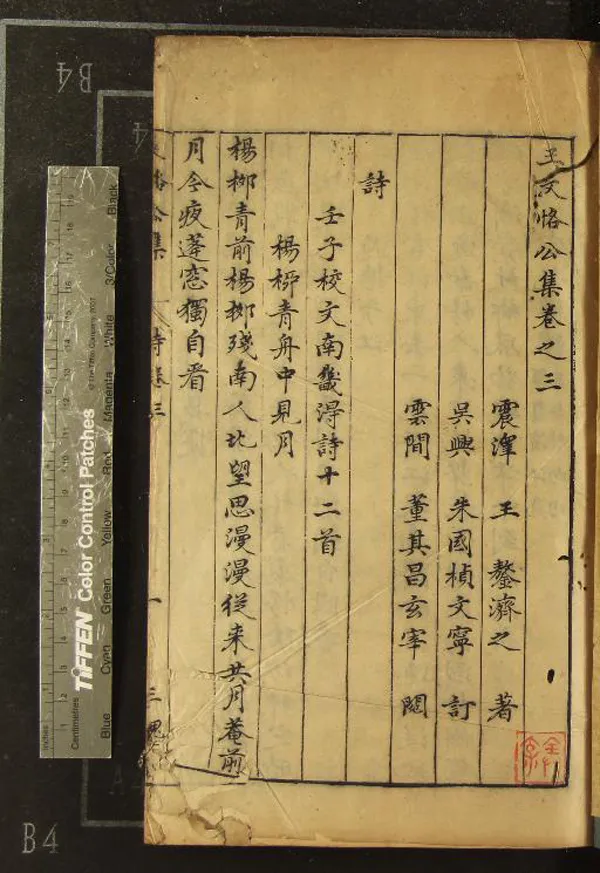 王文恪公集卷之三
震澤 王 鏊濟之 著
吳興 朱國楨文寧 訂
雲間 董其昌玄宰 閱
詩
壬子校文南畿淂詩十二首
楊栁青舟中見月
楊栁青前楊栁殘南人北望思漫漫從来共月菴前
月今夜蓬窓獨自看
恪公集
詩卷三
一
三
B4
B4
4
TIFFEN Color Control Patches
© The Tiffen Company, 2007
Inches
Centimetres
Blue
Cyan
Green
Yellow
Red
Magenta
White
3/Color
Black